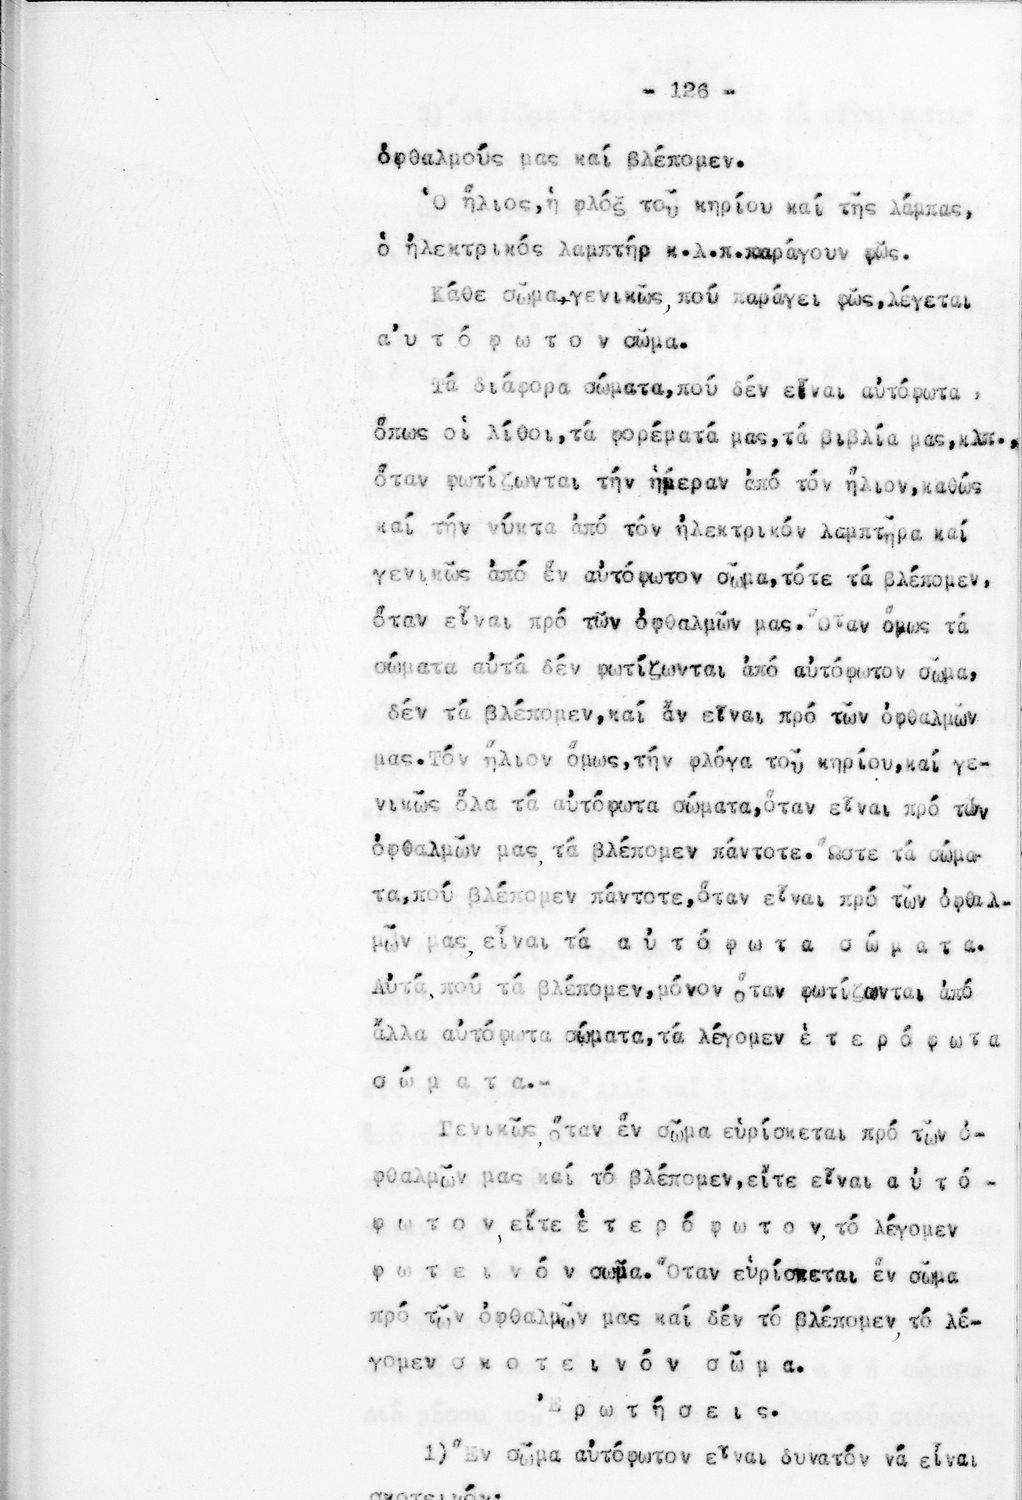 - 126 -
ὀφθαλμούς μας καί βλέπομεν.
Ὁ ἥλιος,ἡ φλόξ τοῦ κηρίου καί τῆς λάμπας,
ὁ ἠλεκτρικός λαμπτήρ κ.λ.π.παράγουν φῶς.
Κάθε σῶμα,γενικῶς,πού παράγει φῶς,λέγεται
α ὐ τ ό φ ω τ ο ν σῶμα.
Τά διάφορα σώματα,πού δέν εἶναι αὐτόφωτα ,
ὅπως οἱ λίθοι,τά φορέματά μας,τά βιβλία μας,κλπ.,
ὅταν φωτίζωνται τήν ἡμέραν ἀπό τόν ἥλιον,καθώς
καί τήν νύκτα ἀπό τόν ἠλεκτρικόν λαμπτῆρα καί
γενικῶς ἀπό ἕν αὐτόφωτον σῶμα,τότε τά βλέπομεν,
ὅταν εἶναι πρό τῶν ὀφθαλμῶν μας.Ὅταν ὅμως τά
σώματα αὐτά δέν φωτίζωνται ἀπό αὐτόφωτον σῶμα,
δέν τά βλέπομεν,καί ἄν εἶναι πρό τῶν ὀφθαλμῶν
μας.Τόν ἥλιον ὅμως,τήν φλόγα τοῦ κηρίου,καί γε-
νικῶς ὅλα τά αὐτόφωτα σώματα,ὅταν εἶναι πρό τῶν
ὀφθαλμῶν μας,τά βλέπομεν πάντοτε.Ὥστε τά σώμα-
τα,πού βλέπομεν πάντοτε,ὅταν εἶναι πρό τῶν ὀφθαλ-
μῶν μας,εἶναι τά α ὐ τ ό φ ω τ α σ ώ μ α τ α.
Αὐτά,πού τά βλέπομεν,μόνον ὅταν φωτίζωνται ἀπό
ἄλλα αὐτόφωτα σώματα,τά λέγομεν ἑ τ ε ρ ό φ ω τ α
σ ώ μ α τ α.-
Γενικῶς,ὅταν ἕν σῶμα εὑρίσκεται πρό τῶν ὀ-
φθαλμῶν μας καί τό βλέπομεν,εἴτε εἶναι α ὐ τ ό -
φ ω τ ο ν,εἴτε ἑ τ ε ρ ό φ ω τ ο ν,τό λέγομεν
φ ω τ ε ι ν ό ν σῶμα.Ὅταν εὑρίσκεται ἕν σῶμα
πρό τῶν ὀφθαλμῶν μας καί δέν τό βλέπομεν,τό λέ-
γομεν σ κ ο τ ε ι ν ό ν σ ῶ μ α.
Ἐ ρ ω τ ή σ ε ι ς.
1)Ἕν σῶμα αὐτόφωτον εἶναι δυνατόν νά εἶναι
σκοτεινόν;